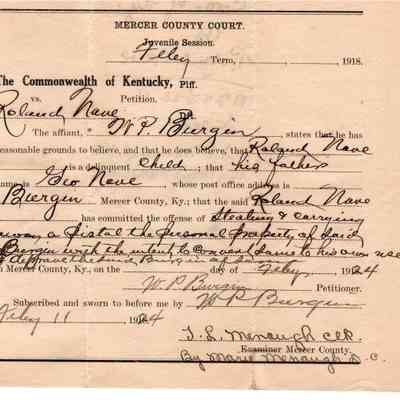 MERCER COUNTY COURT.
Juvenile Session.
Feby Term, 1918.
The Commonwealth of Kentucky, Plff.
vs. Petition.
Roland Nave
The affiant, W P. Burgin, states that he has
reasonable grounds to believe, and that he does believe, that Roland Nave
is a delinquent child; that his father
name is Geo Nave whose post office address is
Burgin Mercer County, Ky.; that the said Roland Nave
has committed the offense of Stealing & carrying
away a Pistol the Personal Property of said
Burgin with the intent to convert same to his own use
& deprave the said Burgin of
n Mercer County, Ky., on the day of Feby 1924
W. P. Burgin Petitioner.
Subscribed and sworn to before me by W P Burgin
Feby 11 1924
T. L. Menaugh Clk
Examiner Mercer County.
By Marie Menaugh D.C.